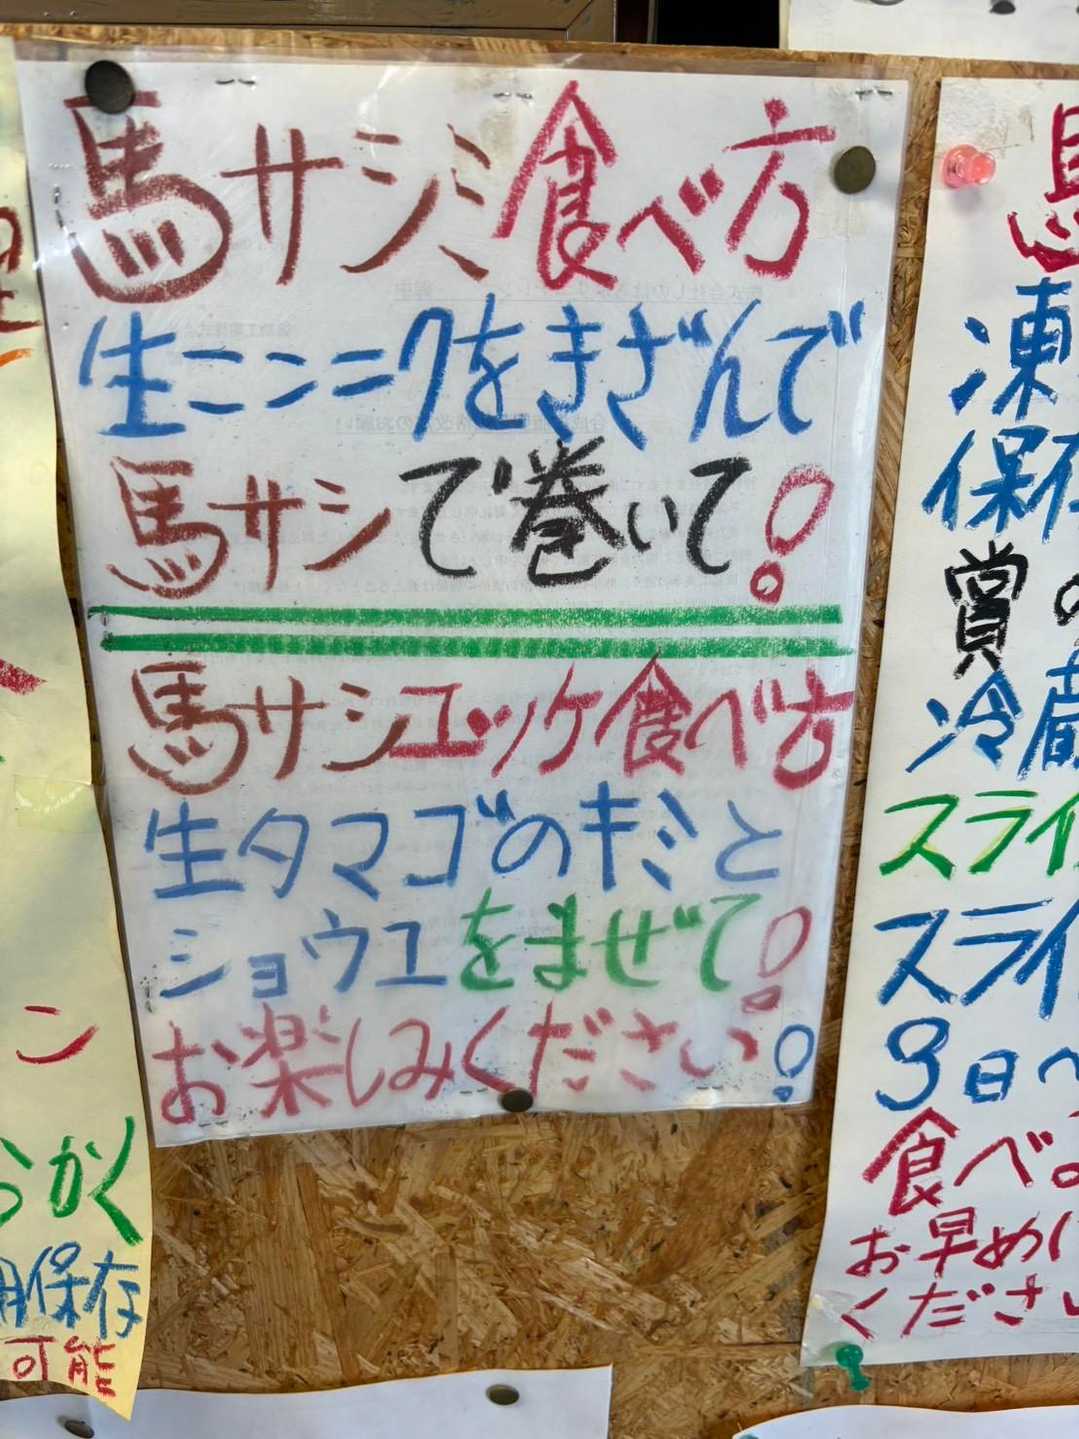 馬サシミ食べ方
生ニンニクをきざんで
馬サシで巻いて!
馬サシユッケ食べ方
生タマゴのキミと
ショウユをまぜて!
お楽しみください!
凍
保存
賞の
冷蔵
スライ
スライ
3日〜
食べ
お早めに
ください
ン
かく
保存
可能